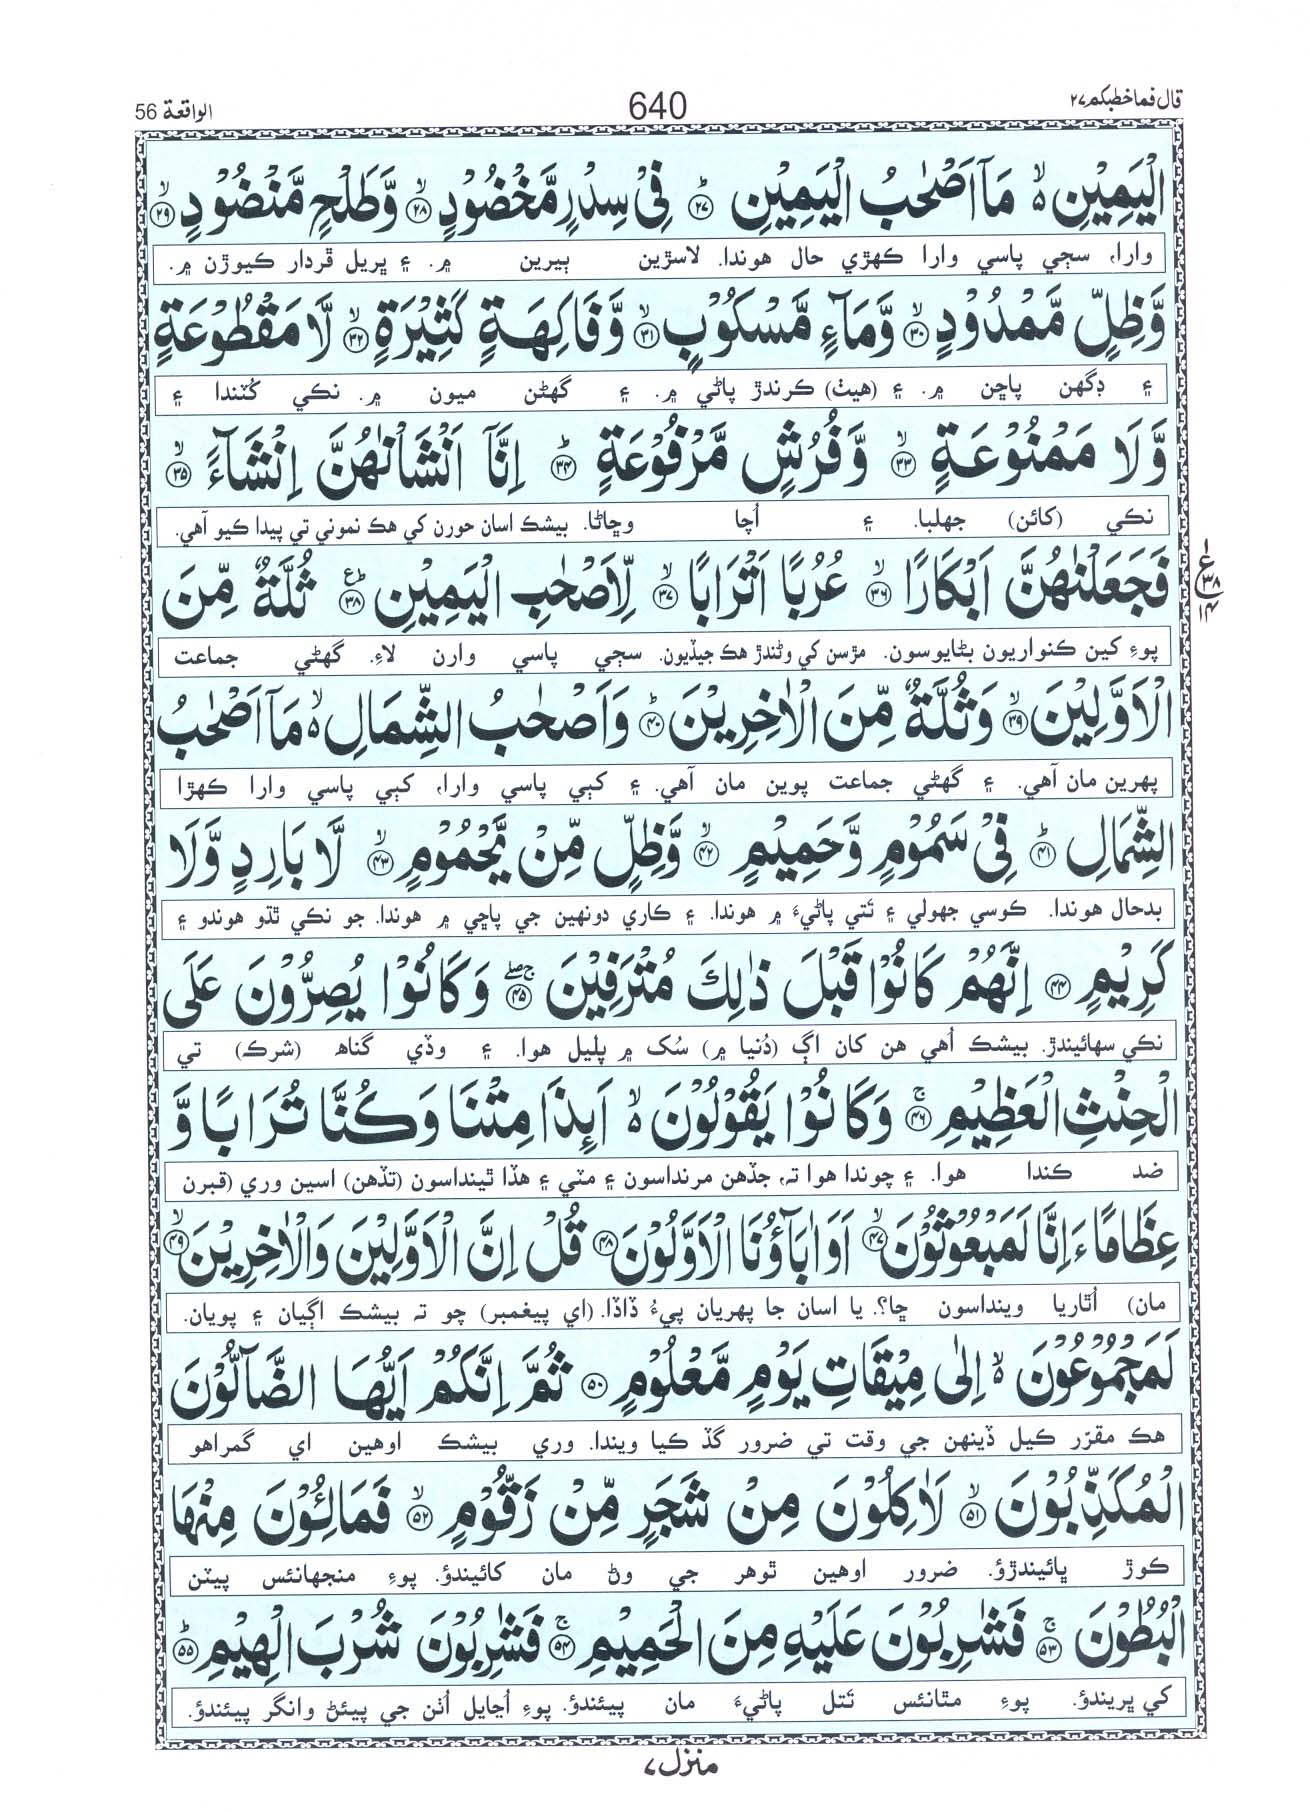 قال فما خطبکم ٢٧
640
الواقعة 56
الْيَمِيْنِ ۙ مَاۤ اَصْحٰبُ الْيَمِيْنِ ؕ﴿۲۷﴾ فِيْ سِدْرٍ مَّخْضُوْدٍ ۙ﴿۲۸﴾ وَّطَلْحٍ مَّنْضُوْدٍ ۙ﴿۲۹﴾
وارا، سڄي پاسي وارا ڪهڙي حال هوندا. لاسڙين ٻيرين ۾. ۽ ڀريل ڦردار ڪيوڙن ۾.
وَّظِلٍّ مَّمْدُوْدٍ ۙ﴿۳۰﴾ وَّمَآءٍ مَّسْكُوْبٍ ۙ﴿۳۱﴾ وَّفَاكِهَةٍ كَثِيْرَةٍ ۙ﴿۳۲﴾ لَّا مَقْطُوْعَةٍ
۽ ڊگهن پاڇن ۾. ۽ (هيٺ) ڪرندڙ پاڻي ۾. ۽ گهڻن ميون ۾. نڪي کُٽندا ۽
وَّلَا مَمْنُوْعَةٍ ۙ﴿۳۳﴾ وَّفُرُشٍ مَّرْفُوْعَةٍ ؕ﴿۳۴﴾ اِنَّاۤ اَنْشَاْنٰهُنَّ اِنْشَآءً ۙ﴿۳۵﴾
نڪي (کائن) جهلبا. ۽ اُچا وڇاڻا. بيشڪ اسان حورن کي هڪ نموني تي پيدا ڪيو آهي.
فَجَعَلْنٰهُنَّ اَبْكَارًا ۙ﴿۳۶﴾ عُرُبًا اَتْرَابًا ۙ﴿۳۷﴾ لِّاَصْحٰبِ الْيَمِيْنِ ؕ﴿۳۸﴾ ثُلَّةٌ مِّنَ
پوءِ کين ڪنواريون بڻايوسون. مڙسن کي وڻندڙ هڪ جيڏيون. سڄي پاسي وارن لاءِ. گهڻي جماعت
الْاَوَّلِيْنَ ۙ﴿۳۹﴾ وَثُلَّةٌ مِّنَ الْاٰخِرِيْنَ ؕ﴿۴۰﴾ وَاَصْحٰبُ الشِّمَالِ ۙ مَاۤ اَصْحٰبُ
پهرين مان آهي. ۽ گهڻي جماعت پوين مان آهي. ۽ کٻي پاسي وارا، کٻي پاسي وارا ڪهڙا
الشِّمَالِ ؕ﴿۴۱﴾ فِيْ سَمُوْمٍ وَّحَمِيْمٍ ۙ﴿۴۲﴾ وَّظِلٍّ مِّنْ يَّحْمُوْمٍ ۙ﴿۴۳﴾ لَّا بَارِدٍ وَّلَا
بدحال هوندا. ڪوسي جهولي ۽ تَتي پاڻيءَ ۾ هوندا. ۽ ڪاري دونهين جي پاڇي ۾ هوندا. جو نڪي ٿڌو هوندو ۽
كَرِيْمٍ ﴿۴۴﴾ اِنَّهُمْ كَانُوْا قَبْلَ ذٰلِكَ مُتْرَفِيْنَ ۚۖ﴿۴۵﴾ وَكَانُوْا يُصِرُّوْنَ عَلَى
نڪي سهائيندڙ. بيشڪ اُهي هن کان اڳ (دُنيا ۾) سُک ۾ پليل هوا. ۽ وڏي گناهه (شرڪ) تي
الْحِنْثِ الْعَظِيْمِ ۚ﴿۴۶﴾ وَكَانُوْا يَقُوْلُوْنَ ۙ اَئِذَا مِتْنَا وَكُنَّا تُرَابًا وَّ
ضد ڪندا هوا. ۽ چوندا هوا ته، جڏهن مرنداسون ۽ مٽي ۽ هڏا ٿينداسون (تڏهن) اسين وري (قبرن
عِظَامًا ءَاِنَّا لَمَبْعُوْثُوْنَ ۙ﴿۴۷﴾ اَوَاٰبَآؤُنَا الْاَوَّلُوْنَ ﴿۴۸﴾ قُلْ اِنَّ الْاَوَّلِيْنَ وَالْاٰخِرِيْنَ ۙ﴿۴۹﴾
مان) اُٿاريا وينداسون ڇا؟. يا اسان جا پهريان پيءُ ڏاڏا. (اي پيغمبر) چو ته بيشڪ اڳيان ۽ پويان.
لَمَجْمُوْعُوْنَ ۙ اِلٰى مِيْقَاتِ يَوْمٍ مَّعْلُوْمٍ ﴿۵۰﴾ ثُمَّ اِنَّكُمْ اَيُّهَا الضَّآلُّوْنَ
هڪ مقرّر ڪيل ڏينهن جي وقت تي ضرور گڏ ڪيا ويندا. وري بيشڪ اوهين اي گمراهو
الْمُكَذِّبُوْنَ ۙ﴿۵۱﴾ لَاٰكِلُوْنَ مِنْ شَجَرٍ مِّنْ زَقُّوْمٍ ۙ﴿۵۲﴾ فَمَالِـُٔوْنَ مِنْهَا
ڪوڙ ڀائيندڙؤ. ضرور اوهين ٿوهر جي وڻ مان کائيندؤ. پوءِ منجهانئس پيٽن
الْبُطُوْنَ ۚ﴿۵۳﴾ فَشٰرِبُوْنَ عَلَيْهِ مِنَ الْحَمِيْمِ ۚ﴿۵۴﴾ فَشٰرِبُوْنَ شُرْبَ الْهِيْمِ ؕ﴿۵۵﴾
کي ڀريندؤ. پوءِ مٿانئس تَتل پاڻيءَ مان پيئندؤ. پوءِ اُڃايل اُٺن جي پيئڻ وانگر پيئندؤ.
ع
٣٨
١٤
منزل ٧